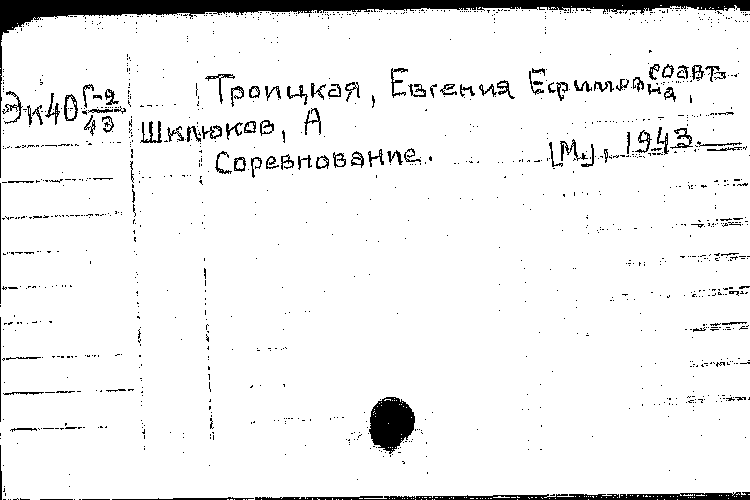 Троицкая, Евгения Ефимовна, соавт.
Эк40 Г-2/43
Шклюков, А
Соревнование. [М.], 1943.